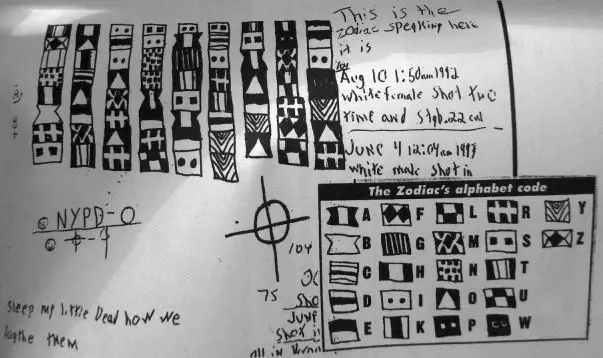 This is the
zodiac speaking here
it is
Aug 10 1:50am 1992
white female shot two
time and Stab .22 cal
JUNE 4 12:04am 1993
white male shot in
NYPD-0
104
75
JUNE
Shot
all in
Sleep my little Dead how we
lothe them
The Zodiac's alphabet code
A F L R Y
B G M S Z
C H N T
D I O U
E K P W